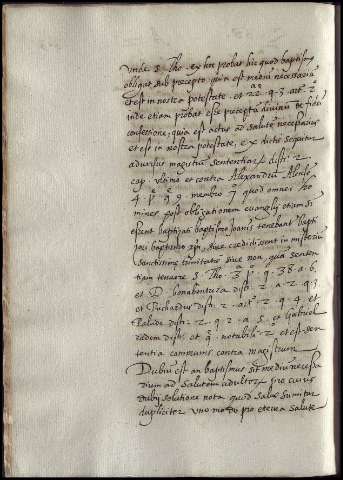 Unde S. Tho. ex hoc probat hic quod baptism9
obligat sub precepto, quia est medium necessarium
et est in nostra potestate. et 2.2. q. 3. art. 2.
inde etiam probat esse preceptum divinum de fidei
confessione, quia est actus ad salutem necessarius
et est in nostra potestate, ex dictis sequitur
adversus magistrum sententiarum disti.
cap. ultimo et contra Alexandrum Alensem
4 p. q. 9. membro quod omnes ho
mines post obligationem evangelij etiam si
essent baptizati baptismo Joannis tenebantur bapti
zari baptismo xpi, sive credidissent in misterium
sanctissime trinitatis sive non, quam senten
tiam tenuere S. Tho. 3 p. q. 38. a. 6.
et D. bonaventura disti. 2. a. 2. q. 3
et Richardus disti. 2. art. 2. q. 4 et
Palude disti. 2. q. 2. a. 5. et Gabriel
eadem disti. et q. notabili. 2. et est sen
tentia communis contra magistrum.
Dubium est an baptismus sit medium necessa
rium ad salutem adultorum pro cuius
dubij solutione nota quod salus sumitur
dupliciter uno modo pro eterna salute